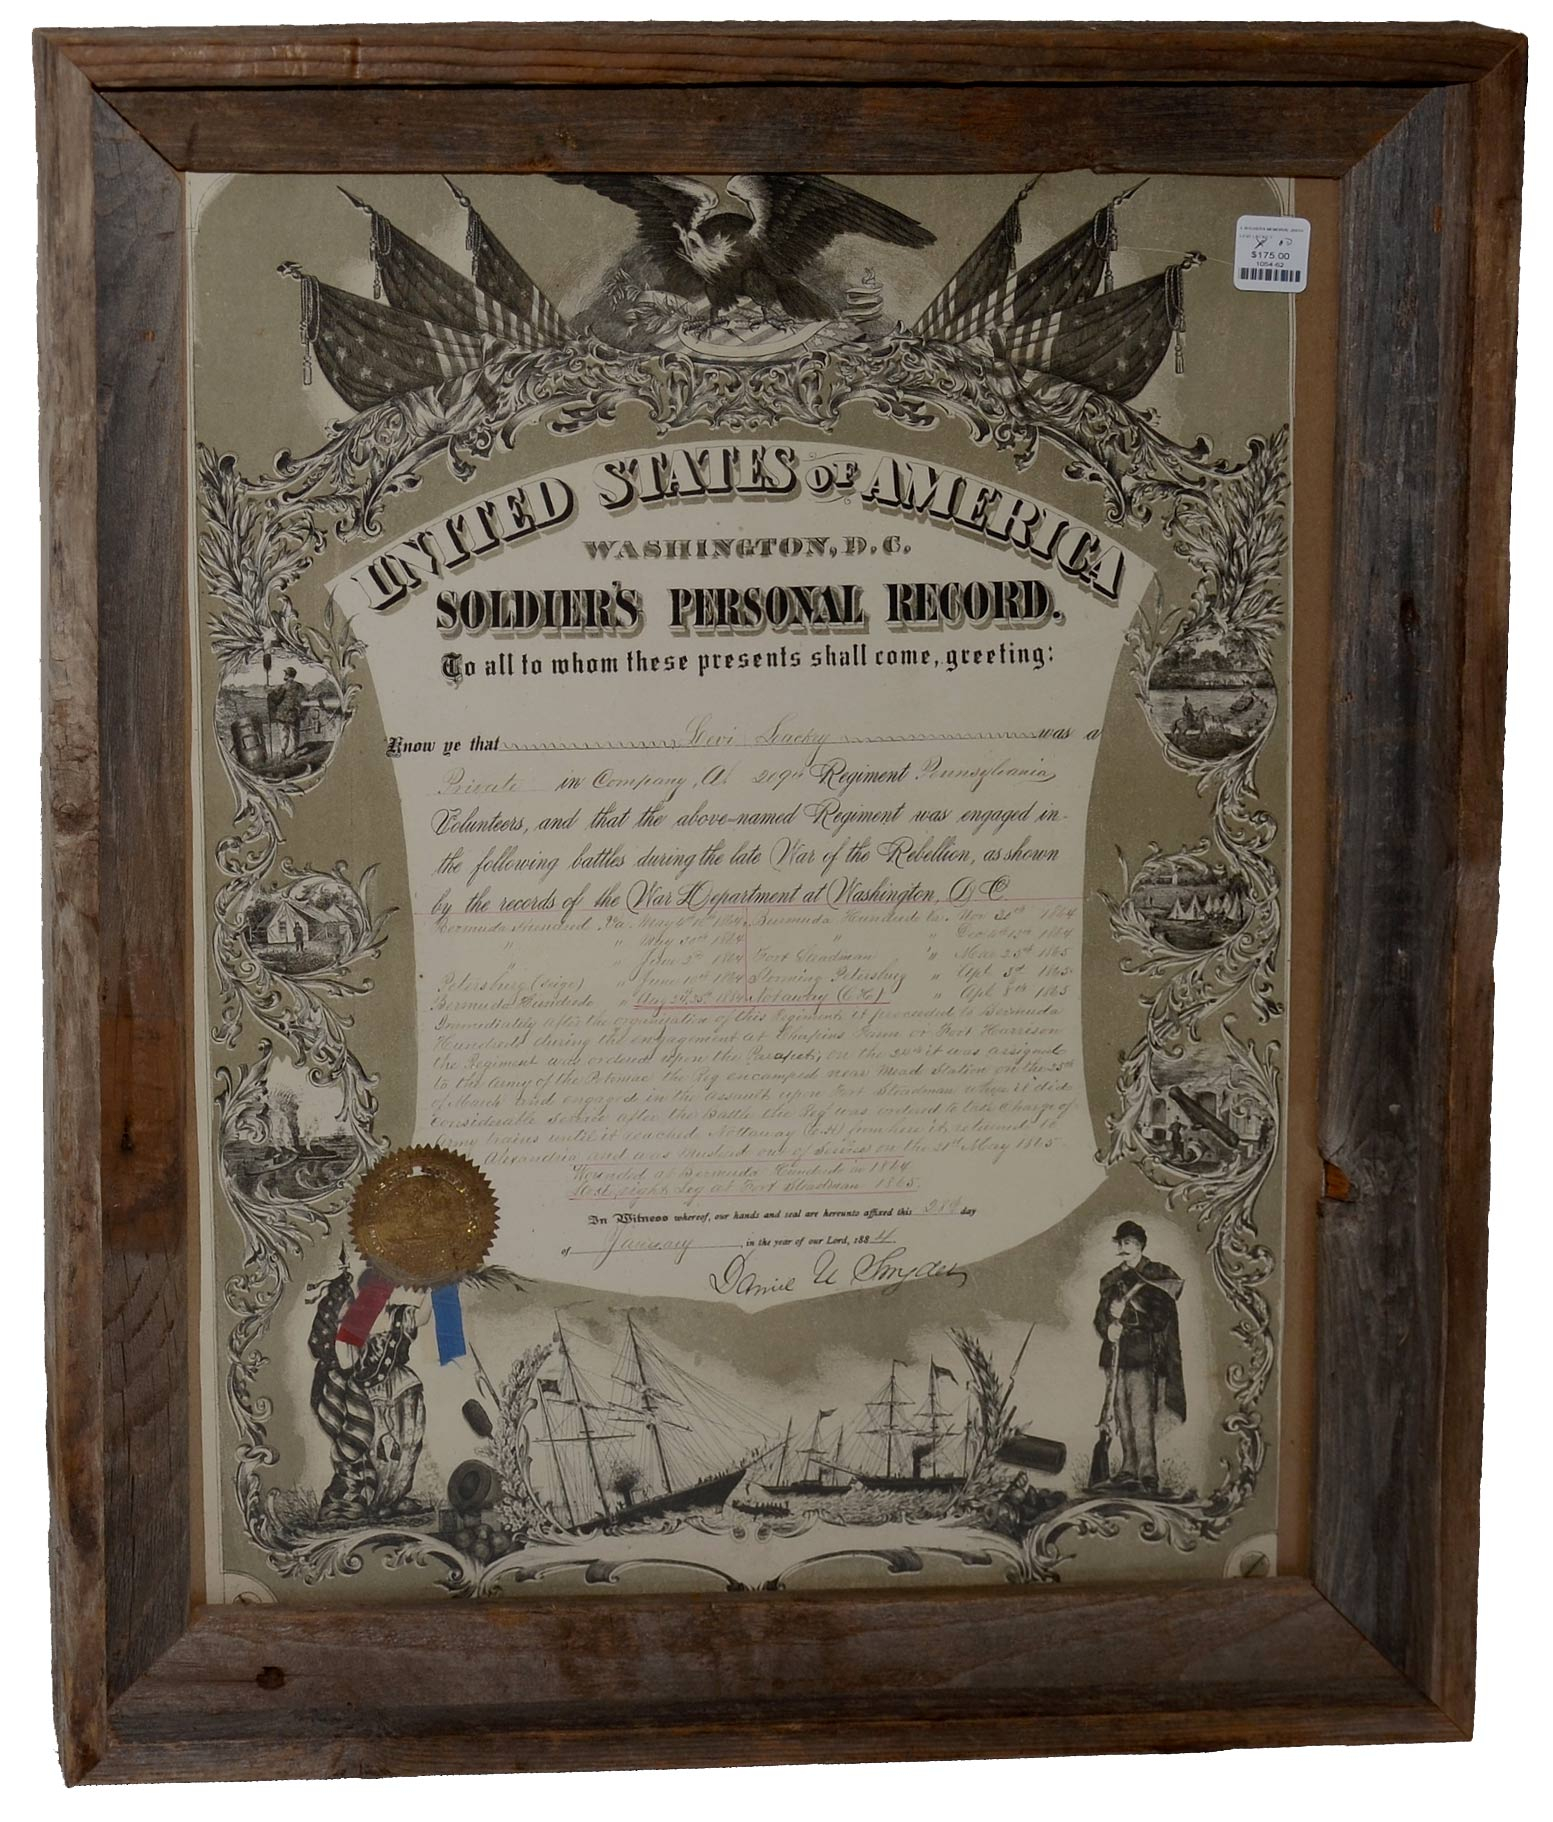 $175.00
1054-62
UNITED STATES OF AMERICA
WASHINGTON, D.C.
SOLDIER'S PERSONAL RECORD.
To all to whom these presents shall come, greeting:
Know ye that Levi Leackey was a
Private in Company, A. 209th Regiment Pennsylvania
Volunteers, and that the above-named Regiment was engaged in
the following battles during the late War of the Rebellion, as shown
by the records of the War Department at Washington, D C
Bermuda Hundred Va. May 1864 Bermuda Hundreds Va. Nov 1864
" " May 20th 1864 " " Dec 1864
" " June 1864 Fort Steadman " Mar 25th 1865
Petersburg (seige) " June 10th 1864 Storming Petersburg " Apl 3d 1865
Bermuda Hundreds " Aug 1864 Notaway (C H) " Apl 8th 1865
Immediately after the organization of this Regiment it proceeded to Bermuda
Hundreds during the engagement at Chapins Farm or Fort Harrison
the Regiment was ordered upon the Parapet, on the 24th it was assigned
to the Army of the Potomac the Reg encamped near Mead Station on the 25th
of March and engaged in the assault upon Fort Steadman where it did
considerable service after the Battle the Reg was ordered to take charge of
Army trains until it reached Nottaway (C H) from here it returned to
Alexandria and was Musterd out of Service on the 31st May 1865
Wounded at Bermuda Hundreds in 1864.
Lost right Leg at Fort Steadman 1865.
In Witness whereof, our hands and seal are hereunto affixed this 28th day
of January in the year of our Lord, 1884.
Daniel U Snyder